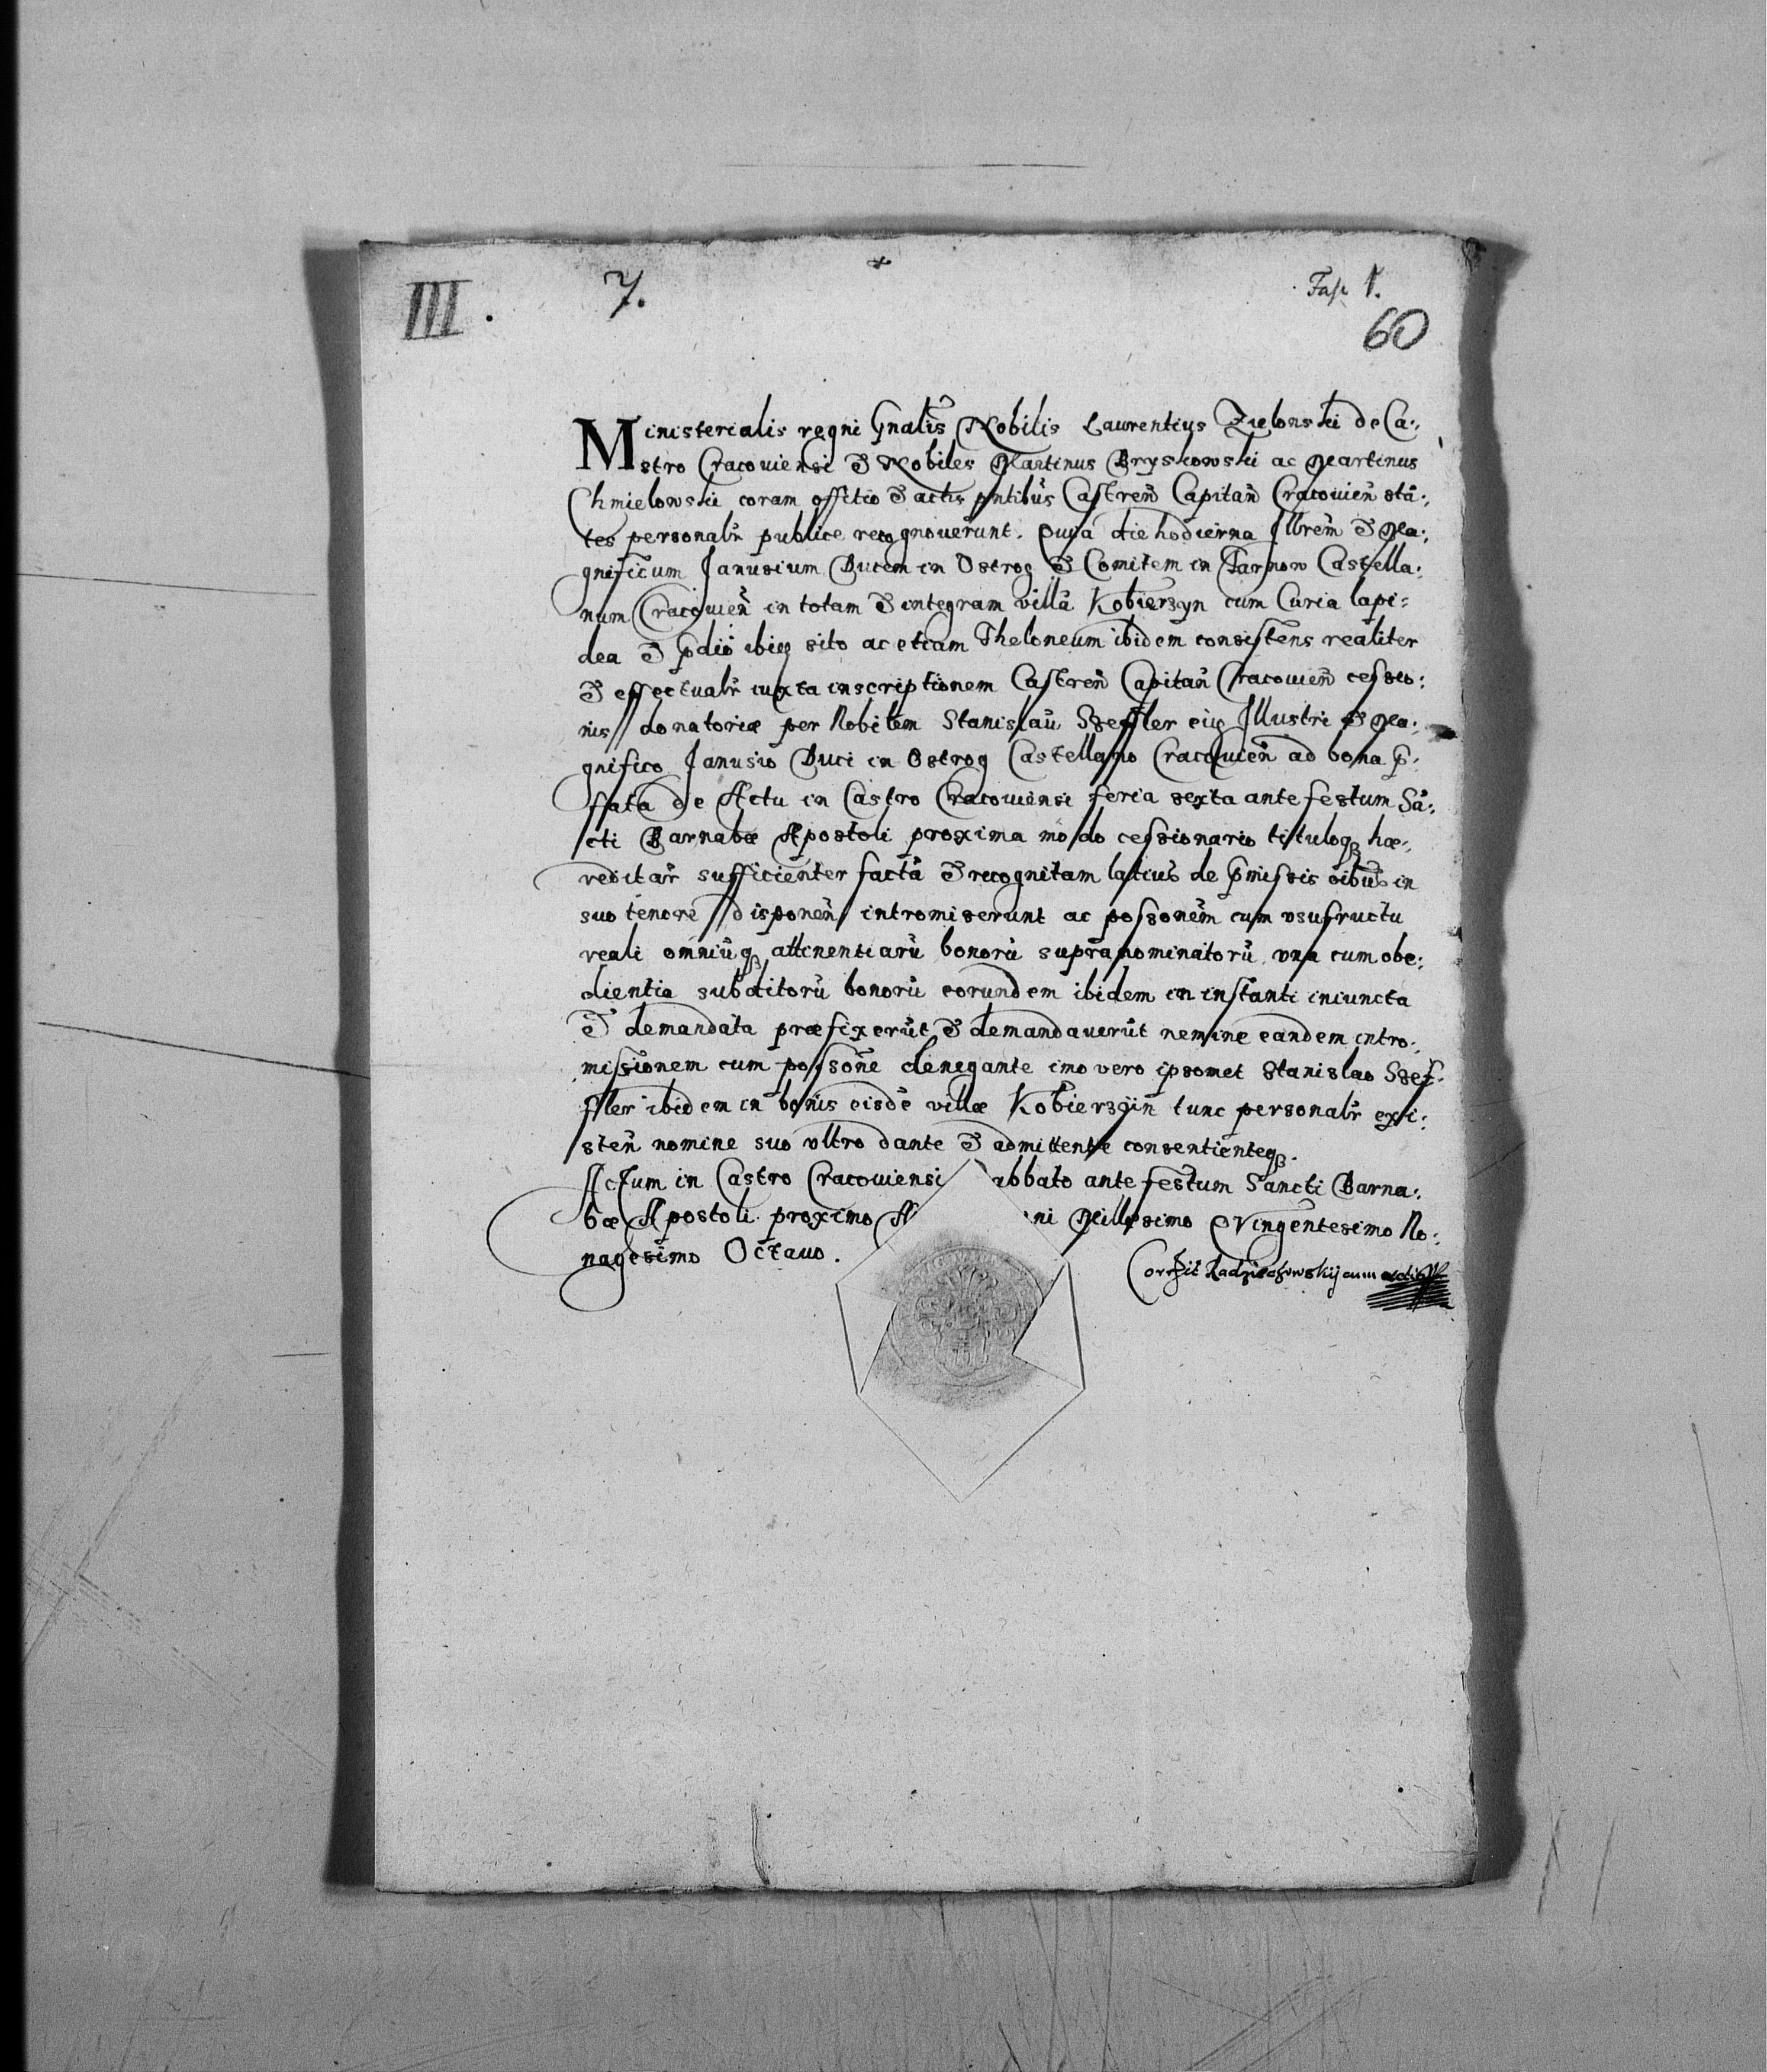 III.
7.
Fasc 1.
60
Ministerialis regni Gnalis Nobilis Laurentius Zielonski de Ca:
stro Cracouiensi & Nobiles Martinus Bryskowski ac Martinus
Chmielowski coram offitio & actis pntibus Castren̄ Capitan̄ Cracouien̄ stā:
tes personalr̄ publice recognouerunt. Quia die hodierna Illrēm & Ma:
gnificum Janusium Ducem in Ostrog & Comitem in Tarnow Castella:
num Cracouien̄ in totam & integram villā Kobierzyn cum Curia lapi:
dea & p̄dio ibiq sito ac etiam Theloneum ibidem consistens realiter
& effectualr̄ iuxta inscriptionem Castren̄ Capitan̄ Cracouien̄ cessio:
nis donatoriæ per Nobilem Stanislaū Szeffler eiq Illustri & Ma:
gnifico Janusio Duci in Ostrog Castellano Cracouien̄ ad bona p̄:
ffata de Actu in Castro Cracouiensi feria sexta ante festum Sā:
cti Barnabæ Apostoli proxima modo cessionario tituloq hæ:
reditar̄ sufficienter factā & recognitam latius de p̄missis oībus in
suo tenore disponen̄ intromiserunt ac possonēm cum vsufructu
reali omniūq attinentiarū bonorū supranominatorū vna cum obe:
dientia subditorū bonorū eorundem ibidem in instanti iniuncta
& demandata præfixerūt & demandauerūt nemine eandem intro:
missionem cum possone denegante imo vero ipsomet Stanislao Szef:
fler ibidem in bonis eisdē villæ Kobierzyin tunc personalr̄ exi:
sten̄ nomine suo vltro dante & admittente consentienteq.
Actum in Castro Cracouiensi abbato ante festum Sancti Barna:
bæ Apostoli proximo A ni Millesimo Qvingentesimo No:
nagesimo Octauo.
Correxit Radzischowskij cum actis